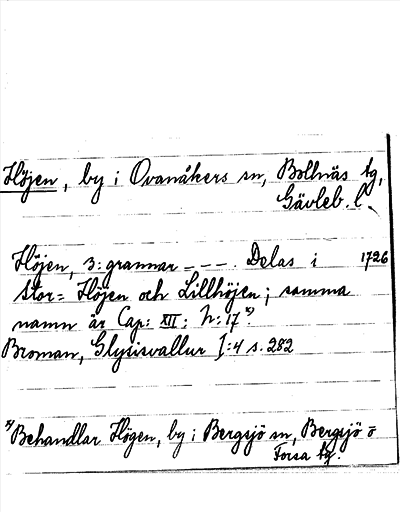 Höjen, by i Ovanåkers sn, Bollnäs tg,
Gävleb. l.
Höjen, 3: grannar _ _ _ . Delas i 1726
Stor= Höjen och Lillhöjen; samma
namn är Cap: XII: N: 17 x).
Broman, Glysisvallur I:4 s. 282
x) Behandlar Högen, by i Bergsjö sn, Bergsjö o
Forsa tg.